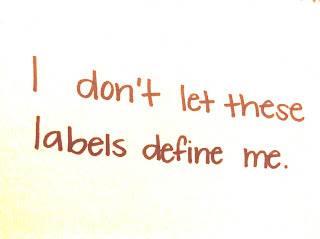 I don't let these
labels define me.